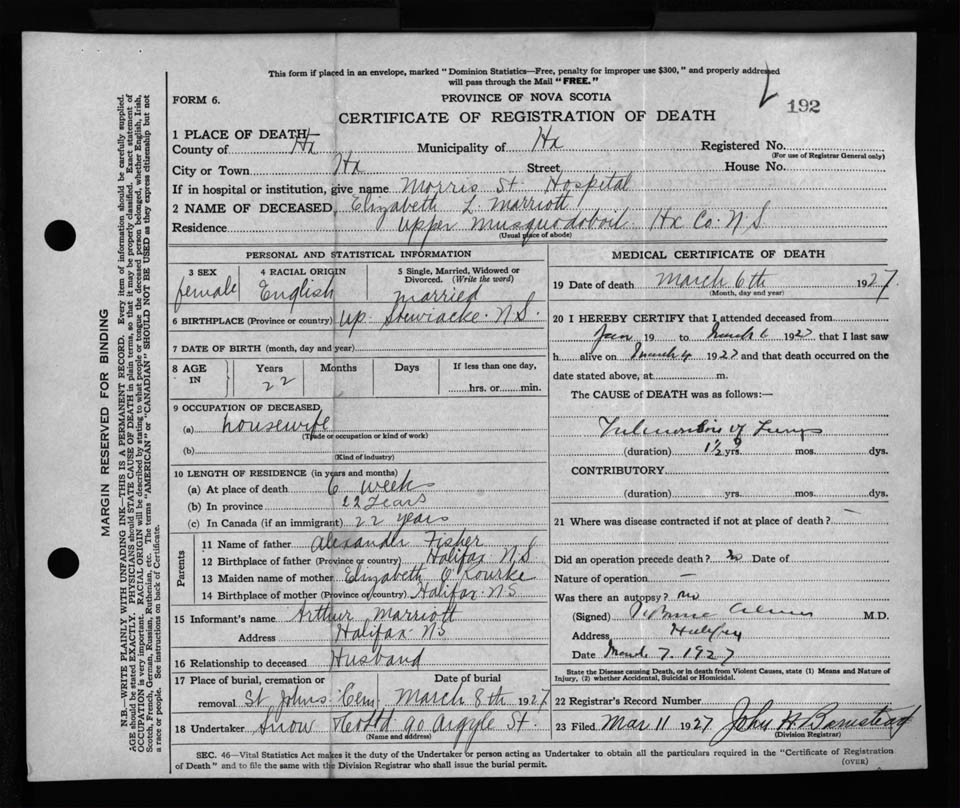 This form if placed in an envelope, marked "Dominion Statistics—Free, penalty for improper use $300," and properly addressed
will pass through the Mail "FREE."
FORM 6.
PROVINCE OF NOVA SCOTIA
192
CERTIFICATE OF REGISTRATION OF DEATH
1 PLACE OF DEATH—
County of Hx Municipality of Hx Registered No.
(For use of Registrar General only)
City or Town Hx Street House No.
If in hospital or institution, give name Morris St. Hospital
2 NAME OF DECEASED Elizabeth L. Marriott
Residence Upper Musquodoboit Hx Co. N.S
(Usual place of abode)
PERSONAL AND STATISTICAL INFORMATION
3 SEX female
4 RACIAL ORIGIN English
5 Single, Married, Widowed or Divorced. (Write the word) married
6 BIRTHPLACE (Province or country) Up. Stewiacke. N.S.
7 DATE OF BIRTH (month, day and year)
8 AGE IN Years 22 Months Days If less than one day, hrs. or min.
9 OCCUPATION OF DECEASED
(a) housewife
(Trade or occupation or kind of work)
(b)
(Kind of industry)
10 LENGTH OF RESIDENCE (in years and months)
(a) At place of death 6 weeks
(b) In province 22 years
(c) In Canada (if an immigrant) 22 years
Parents
11 Name of father Alexander Fisher
12 Birthplace of father (Province or country) Halifax N.S
13 Maiden name of mother Elizabeth O'Rourke
14 Birthplace of mother (Province or country) Halifax N.S
15 Informant's name Arthur Marriott
Address Halifax N.S
16 Relationship to deceased Husband
17 Place of burial, cremation or removal St Johns Cem. Date of burial March 8th 1927
18 Undertaker Snow 90 Argyle St.
(Name and address)
MEDICAL CERTIFICATE OF DEATH
19 Date of death March 6th 1927
(Month, day and year)
20 I HEREBY CERTIFY that I attended deceased from
Jan 19 to March 6 1927 that I last saw
h alive on March 4 1927 and that death occurred on the
date stated above, at m.
The CAUSE of DEATH was as follows:—
of Lungs
(duration) 1½ yrs. mos. dys.
CONTRIBUTORY
(duration) yrs. mos. dys.
21 Where was disease contracted if not at place of death? —
Did an operation precede death? no Date of
Nature of operation —
Was there an autopsy? no
(Signed) M.D.
Address Halifax
Date March 7. 1927
State the Disease causing Death, or in death from Violent Causes, state (1) Means and Nature of
Injury, (2) whether Accidental, Suicidal or Homicidal.
22 Registrar's Record Number
23 Filed Mar 11 1927 John H Barnstead
(Division Registrar)
SEC. 46—Vital Statistics Act makes it the duty of the Undertaker or person acting as Undertaker to obtain all the particulars required in the "Certificate of Registration
of Death" and to file the same with the Division Registrar who shall issue the burial permit.
(OVER)
MARGIN RESERVED FOR BINDING
N.B.—WRITE PLAINLY WITH UNFADING INK—THIS IS A PERMANENT RECORD. Every item of information should be carefully supplied.
AGE should be stated EXACTLY. PHYSICIANS should STATE CAUSE OF DEATH in plain terms, so that it may be properly classified. Exact statement of
OCCUPATION is very important. RACIAL ORIGIN will be described by stating to what people or tongue the deceased person belonged, whether English, Irish,
Scotch, French, German, Russian, Ruthenian, etc. The terms "AMERICAN" or "CANADIAN" SHOULD NOT BE USED as they express citizenship but not
a race or people. See instructions on back of Certificate.